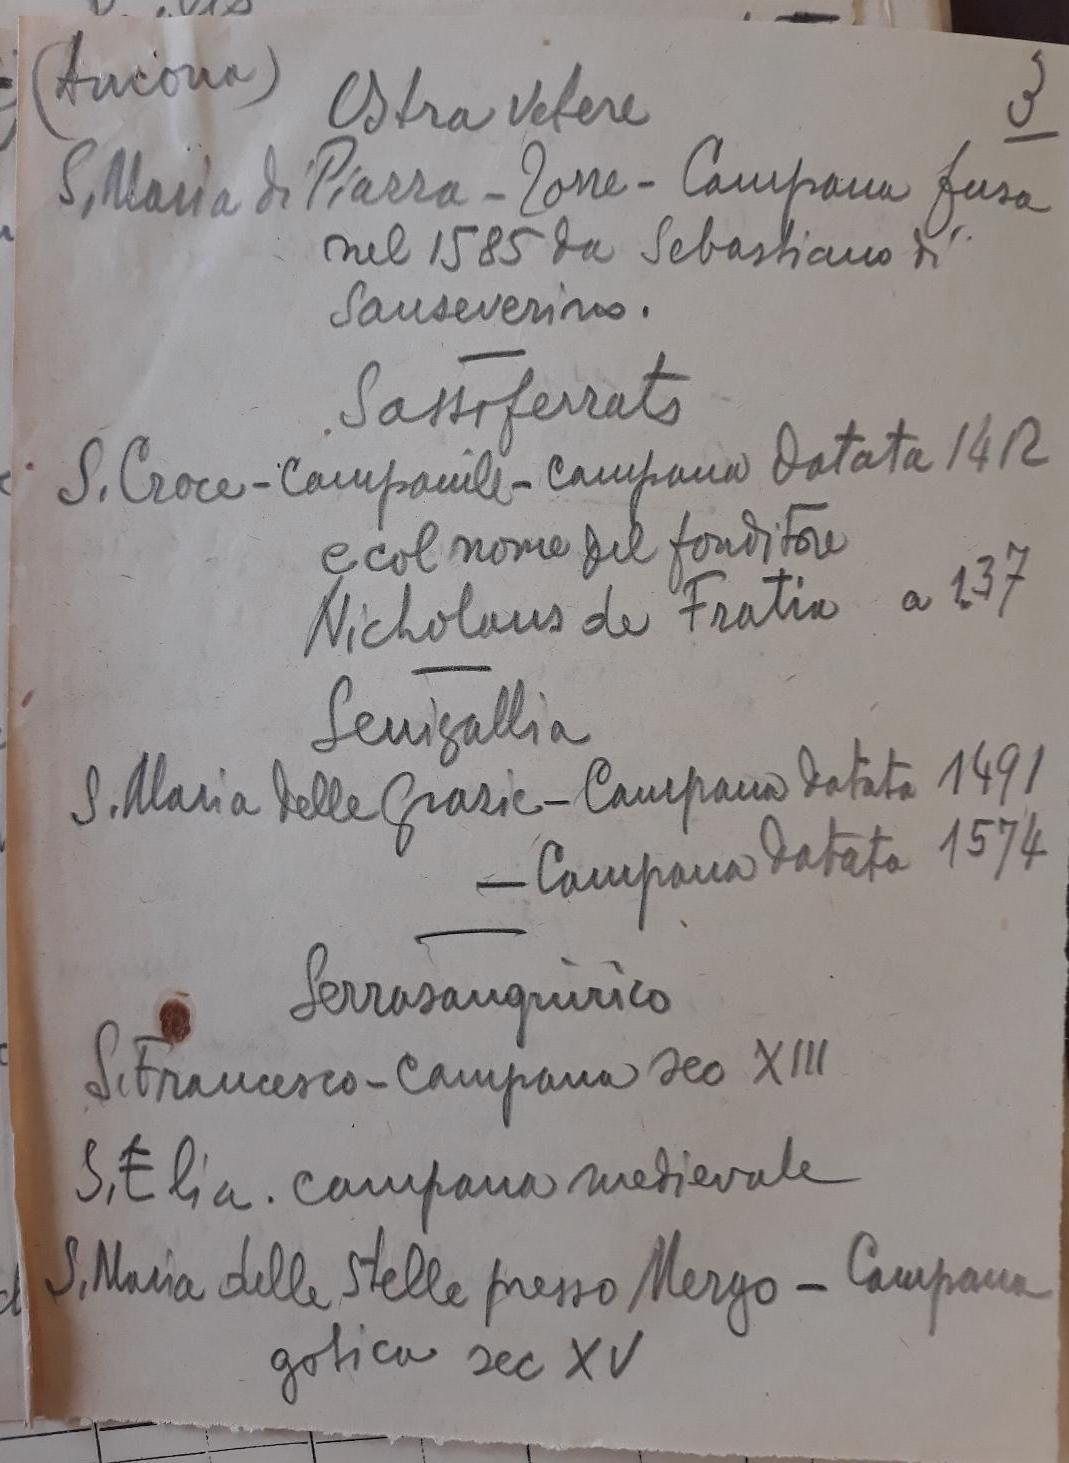 (Ancona)
3
Ostra Vetere
S. Maria di Piazza - Torre - Campana fusa
nel 1585 da Sebastiano di
Sanseverino.
Sassoferrato
S. Croce - campanile - campana datata 1412
e col nome del fonditore
Nicholaus de Fratia a 137
Senigallia
S. Maria delle Grazie - Campana datata 1491
- Campana datata 1574
Serrasanquirico
S. Francesco - campana sec XIII
S. Elia. campana medievale
S. Maria delle Stelle presso Mergo - Campana
gotica sec XV